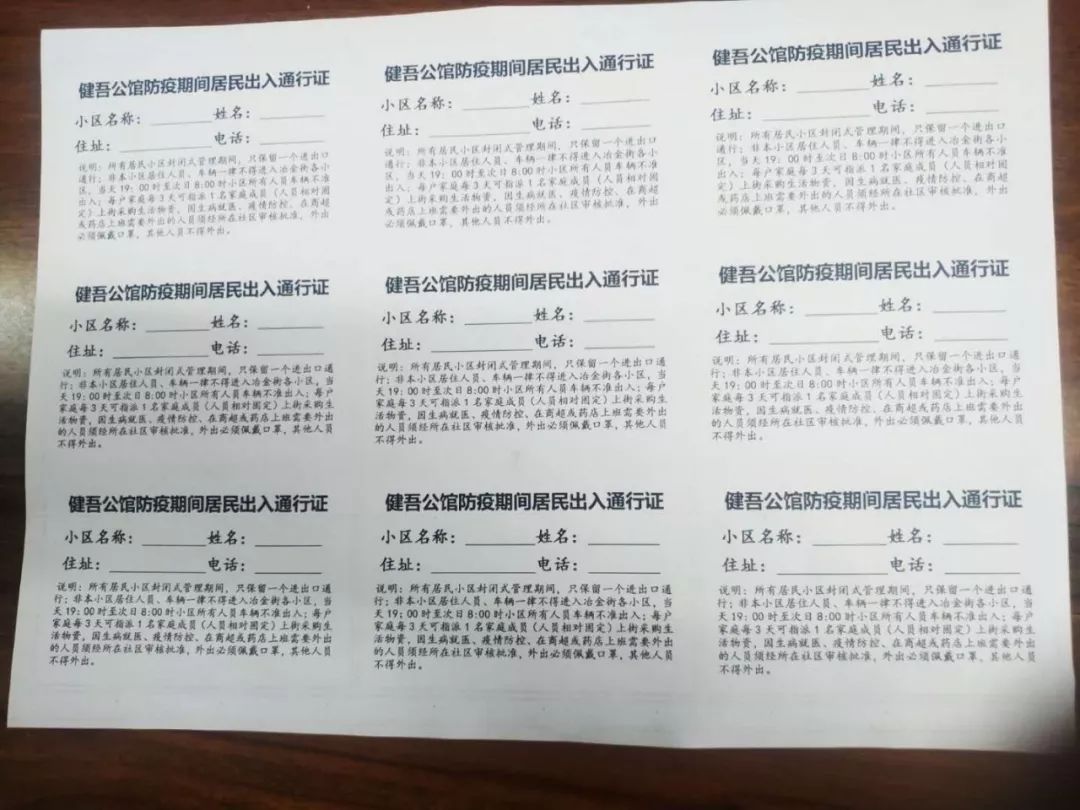 健吾公馆防疫期间居民出入通行证
小区名称：______姓名：______
住址：________电话：______
说明：所有居民小区封闭式管理期间，只保留一个进出口
通行；非本小区居住人员、车辆一律不得进入冶金街各小
区，当天19：00时至次日8:00时小区所有人员车辆不准
出入；每户家庭每3天可指派1名家庭成员（人员相对固
定）上街采购生活物资，因生病就医、疫情防控、在商超
或药店上班需要外出的人员须经所在社区审核批准，外出
必须佩戴口罩，其他人员不得外出。
健吾公馆防疫期间居民出入通行证
小区名称：______姓名：______
住址：________电话：______
说明：所有居民小区封闭式管理期间，只保留一个进出口
通行；非本小区居住人员、车辆一律不得进入冶金街各小
区，当天19：00时至次日8:00时小区所有人员车辆不准
出入；每户家庭每3天可指派1名家庭成员（人员相对固
定）上街采购生活物资，因生病就医、疫情防控、在商超
或药店上班需要外出的人员须经所在社区审核批准，外出
必须佩戴口罩，其他人员不得外出。
健吾公馆防疫期间居民出入通行证
小区名称：______姓名：______
住址：________电话：______
说明：所有居民小区封闭式管理期间，只保留一个进出口
通行；非本小区居住人员、车辆一律不得进入冶金街各小
区，当天19：00时至次日8:00时小区所有人员车辆不准
出入；每户家庭每3天可指派1名家庭成员（人员相对固
定）上街采购生活物资，因生病就医、疫情防控、在商超
或药店上班需要外出的人员须经所在社区审核批准，外出
必须佩戴口罩，其他人员不得外出。
健吾公馆防疫期间居民出入通行证
小区名称：______姓名：______
住址：________电话：______
说明：所有居民小区封闭式管理期间，只保留一个进出口通
行；非本小区居住人员、车辆一律不得进入冶金街各小区，当
天19：00时至次日8:00时小区所有人员车辆不准出入；每户
家庭每3天可指派1名家庭成员（人员相对固定）上街采购生
活物资，因生病就医、疫情防控、在商超或药店上班需要外出
的人员须经所在社区审核批准，外出必须佩戴口罩，其他人员
不得外出。
健吾公馆防疫期间居民出入通行证
小区名称：______姓名：______
住址：________电话：______
说明：所有居民小区封闭式管理期间，只保留一个进出口通
行；非本小区居住人员、车辆一律不得进入冶金街各小区，当
天19：00时至次日8:00时小区所有人员车辆不准出入；每户
家庭每3天可指派1名家庭成员（人员相对固定）上街采购生
活物资，因生病就医、疫情防控、在商超或药店上班需要外出
的人员须经所在社区审核批准，外出必须佩戴口罩，其他人员
不得外出。
健吾公馆防疫期间居民出入通行证
小区名称：______姓名：______
住址：________电话：______
说明：所有居民小区封闭式管理期间，只保留一个进出口通
行；非本小区居住人员、车辆一律不得进入冶金街各小区，当
天19：00时至次日8:00时小区所有人员车辆不准出入；每户
家庭每3天可指派1名家庭成员（人员相对固定）上街采购生
活物资，因生病就医、疫情防控、在商超或药店上班需要外出
的人员须经所在社区审核批准，外出必须佩戴口罩，其他人员
不得外出。
健吾公馆防疫期间居民出入通行证
小区名称：______姓名：______
住址：________电话：______
说明：所有居民小区封闭式管理期间，只保留一个进出口通
行；非本小区居住人员、车辆一律不得进入冶金街各小区，当
天19：00时至次日8:00时小区所有人员车辆不准出入；每户
家庭每3天可指派1名家庭成员（人员相对固定）上街采购生
活物资，因生病就医、疫情防控、在商超或药店上班需要外出
的人员须经所在社区审核批准，外出必须佩戴口罩，其他人员
不得外出。
健吾公馆防疫期间居民出入通行证
小区名称：______姓名：______
住址：________电话：______
说明：所有居民小区封闭式管理期间，只保留一个进出口通
行；非本小区居住人员、车辆一律不得进入冶金街各小区，当
天19：00时至次日8:00时小区所有人员车辆不准出入；每户
家庭每3天可指派1名家庭成员（人员相对固定）上街采购生
活物资，因生病就医、疫情防控、在商超或药店上班需要外出
的人员须经所在社区审核批准，外出必须佩戴口罩，其他人员
不得外出。
健吾公馆防疫期间居民出入通行证
小区名称：______姓名：______
住址：________电话：______
说明：所有居民小区封闭式管理期间，只保留一个进出口通
行；非本小区居住人员、车辆一律不得进入冶金街各小区，当
天19：00时至次日8:00时小区所有人员车辆不准出入；每户
家庭每3天可指派1名家庭成员（人员相对固定）上街采购生
活物资，因生病就医、疫情防控、在商超或药店上班需要外出
的人员须经所在社区审核批准，外出必须佩戴口罩，其他人员
不得外出。